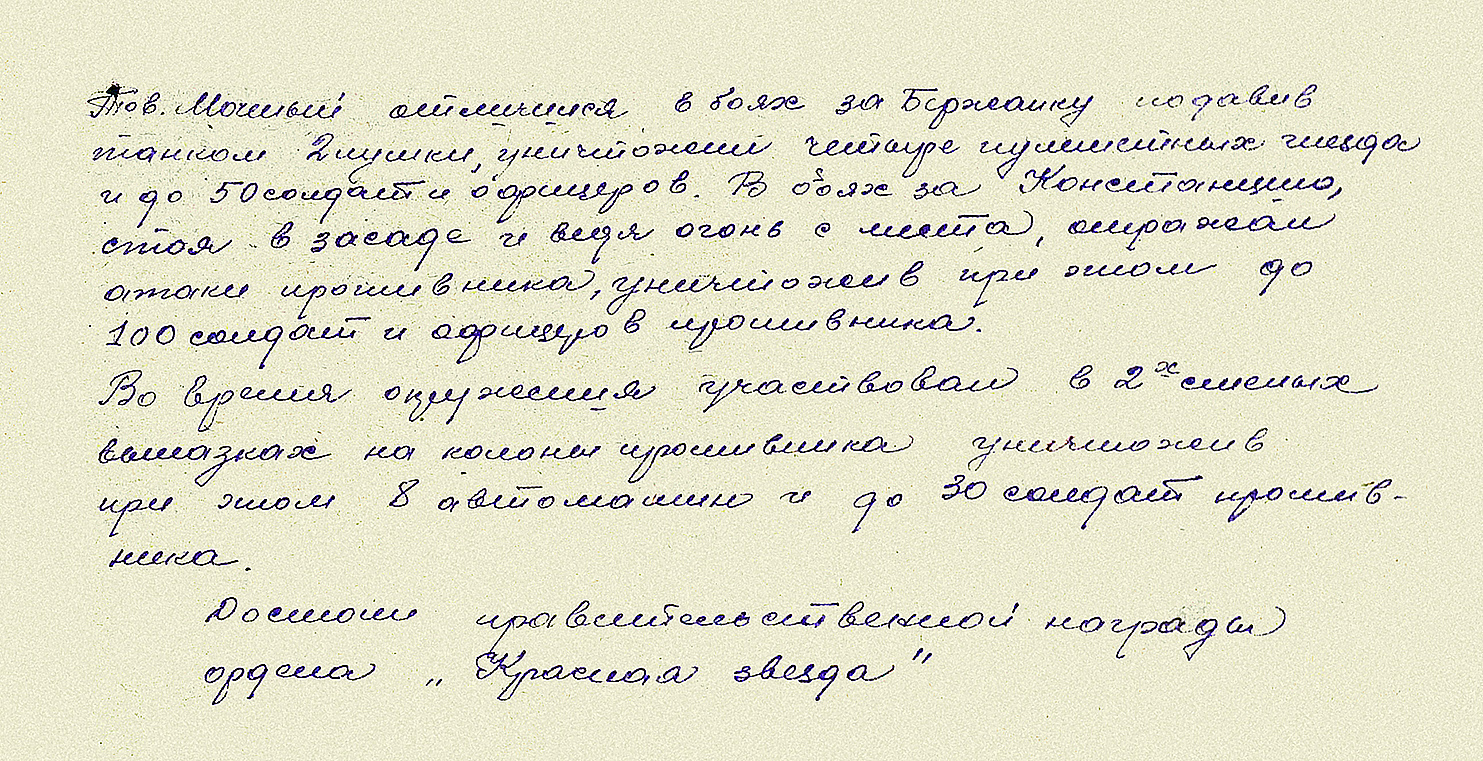 Тов. Мочный отличился в боях за Боржанку подавив
танком 2 пушки, уничтожил четыре пулеметных гнезда
и до 50 солдат и офицеров. В боях за Констанцию,
стоя в засаде и ведя огонь с места, отражал
атаки противника, уничтожив при этом до
100 солдат и офицеров противника.
Во время окружения участвовал в 2х смелых
вылазках на колоны противника уничтожив
при этом 8 автомашин и до 30 солдат против-
ника.
Достоин правительственной награды
ордена „Красная звезда"